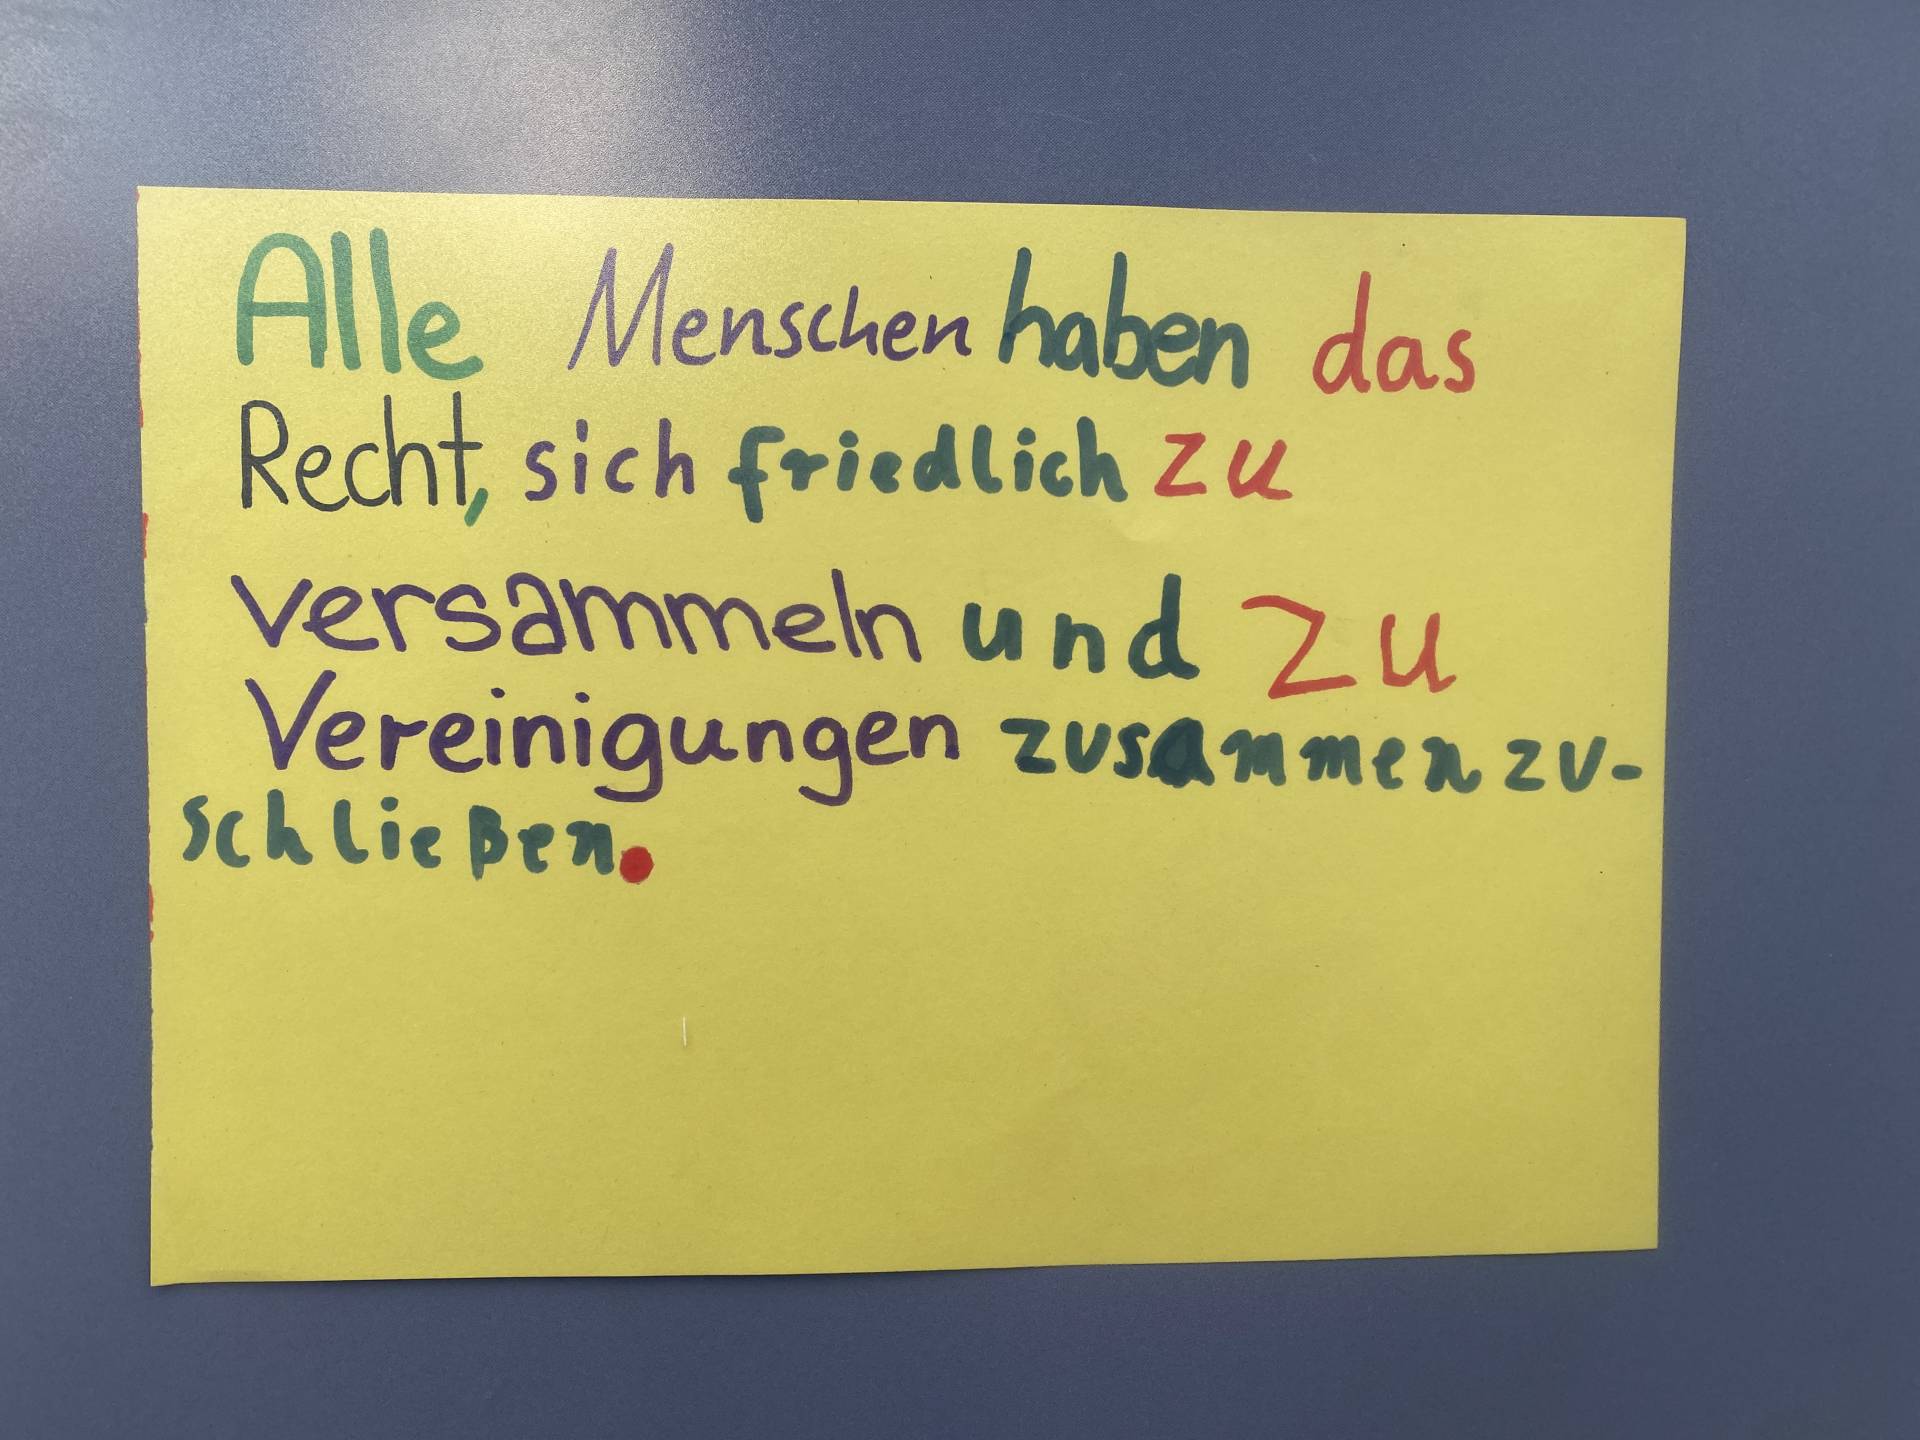 Alle Menschen haben das
Recht, sich friedlich zu
versammeln und zu
Vereinigungen zusammenzu-
schließen.